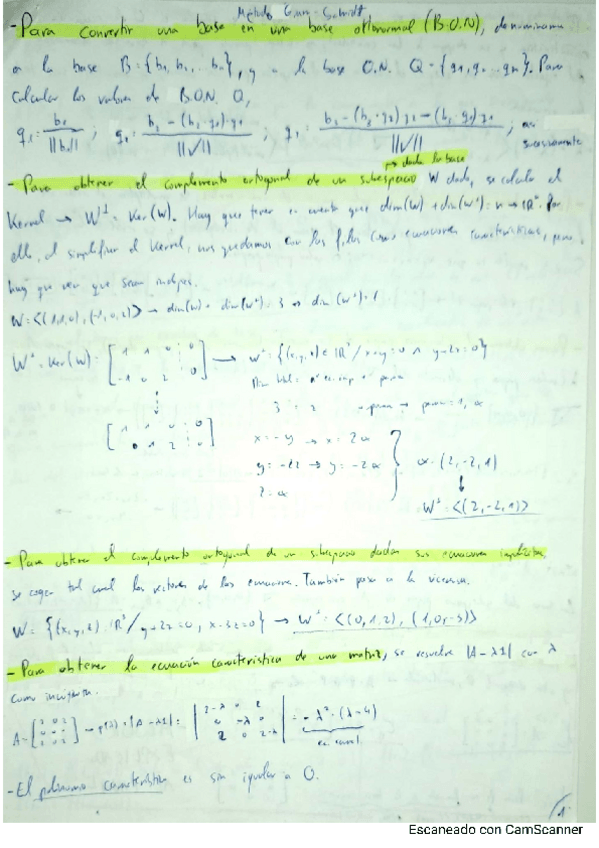 Método Gram-Schmidt
- Para convertir una base en una base ortonormal (B.O.N), denominamos
a la base B = {b₁, b₂, ... bₙ}, y a la base O.N. Q = {q₁, q₂ ... qₙ}. Para
calcular los valores de B.O.N. Q,
q₁ = b₁ / ||b₁|| ; q₂ = b₂ - (b₂·q₁)·q₁ / ||✓|| ; ||✓|| ; así
sucesivamente
→ dada la base
- Para obtener el complemento ortogonal de un subespacio W dado, se calcula el
Kernel → W⊥ = Ker(W). Hay que tener en cuenta que dim(W) + dim(W⊥) = n → ℝⁿ. Por
ello, al simplificar el Kernel, nos quedamos con las filas como ecuaciones características, pero
hay que ver que sean indeps.
W = <(1,1,0), (-1,0,2)> → dim(W) + dim(W⊥) = 3 → dim(W⊥) = 1
W⊥ = Ker(W) = [1 1 0 : 0 → W⊥ = {(x,y,z) ∈ ℝ³ / x+y=0 ∧ y+2z=0}
-1 0 2 : 0]
[1 1 0 : 0
0 1 2 : 0]
3 = 2
x = -y → x = 2α
y = -2z → y = -2α
z = α
α·(2,-2,1)
↓
W⊥ = <(2,-2,1)>
- Para obtener el complemento ortogonal de un subespacio dadas sus ecuaciones implícitas,
se cogen tal cual los vectores de las ecuaciones. También pasa a la viceversa.
W = {(x,y,z) ∈ ℝ³ / y+2z=0, x-3z=0} → W⊥ = <(0,1,2), (1,0,-3)>
- Para obtener la ecuación característica de una matriz, se resuelve |A - λI| con λ
como incógnita.
A = → p(λ) = |A - λI| = |2-λ 0 2 = -λ²·(λ-4)
0 -λ 0
2 0 2-λ|
ec. caract.
- El polinomio característico es sin igualar a 0.
1
Escaneado con CamScanner